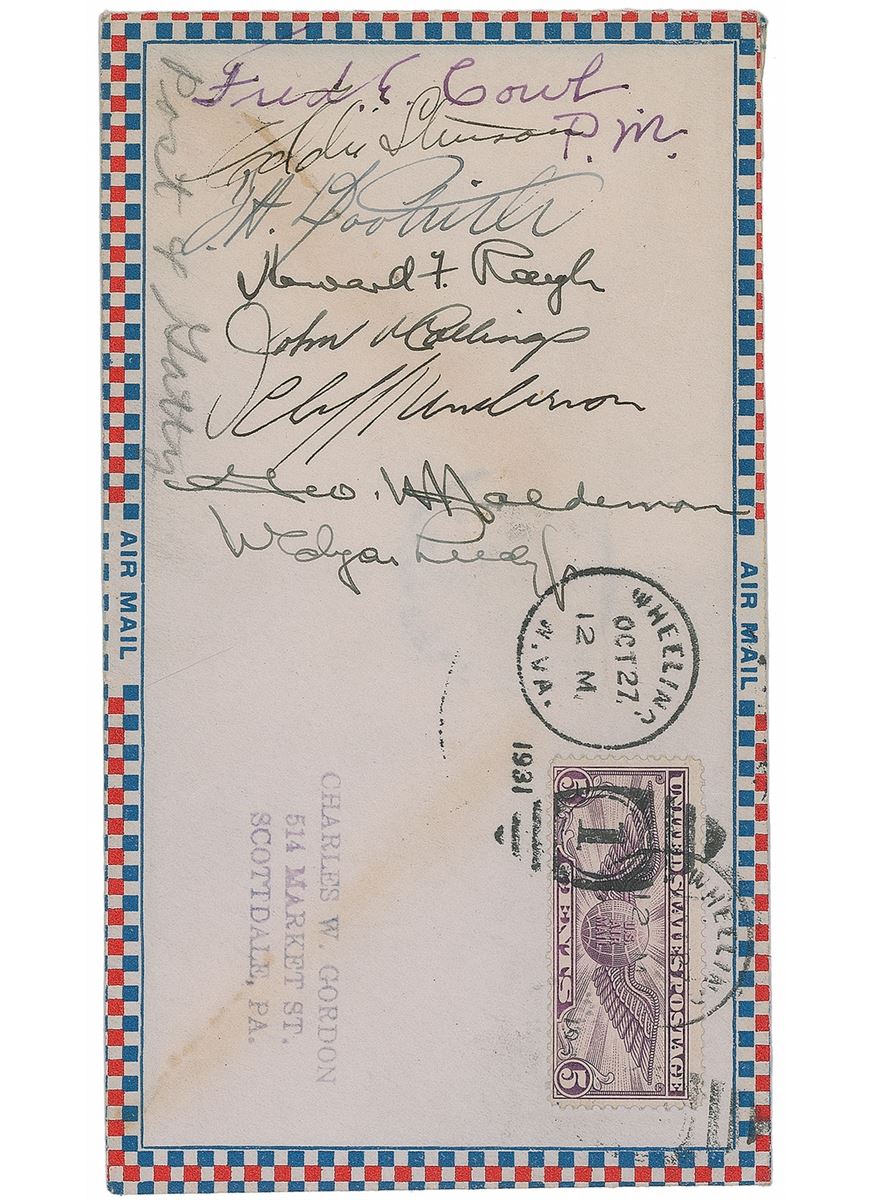 Fred E. Cowl
P.M.
Eddie Stinson
J.H. Doolittle
Howard F.
John
Geo. W. Haldeman
W Edgar
Post & Gatty
AIR MAIL
AIR MAIL
WHEELING
OCT 27
12 M.
W.VA.
1931
CHARLES W. GORDON
514 MARKET ST.
SCOTTDALE, PA.
UNITED STATES POSTAGE
U.S. AIR MAIL
5 CENTS 5
1
WHEELING
12 M